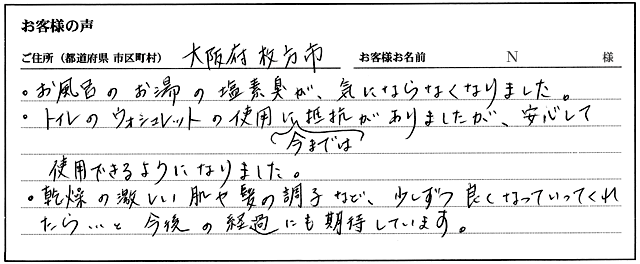 お客様の声
ご住所（都道府県 市区町村） 大阪府枚方市 お客様お名前 N 様
・お風呂のお湯の塩素臭が、気にならなくなりました。
・トイレのウォシュレットの使用に抵抗がありましたが、安心して
今までは
使用できるようになりました。
・乾燥の激しい肌や髪の調子など、少しずつ良くなっていってくれ
たら…と今後の経過にも期待しています。